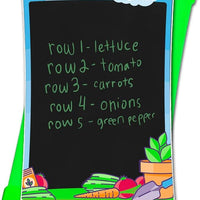 row 1 - lettuce
row 2 - tomato
row 3 - carrots
row 4 - onions
row 5 - green pepper